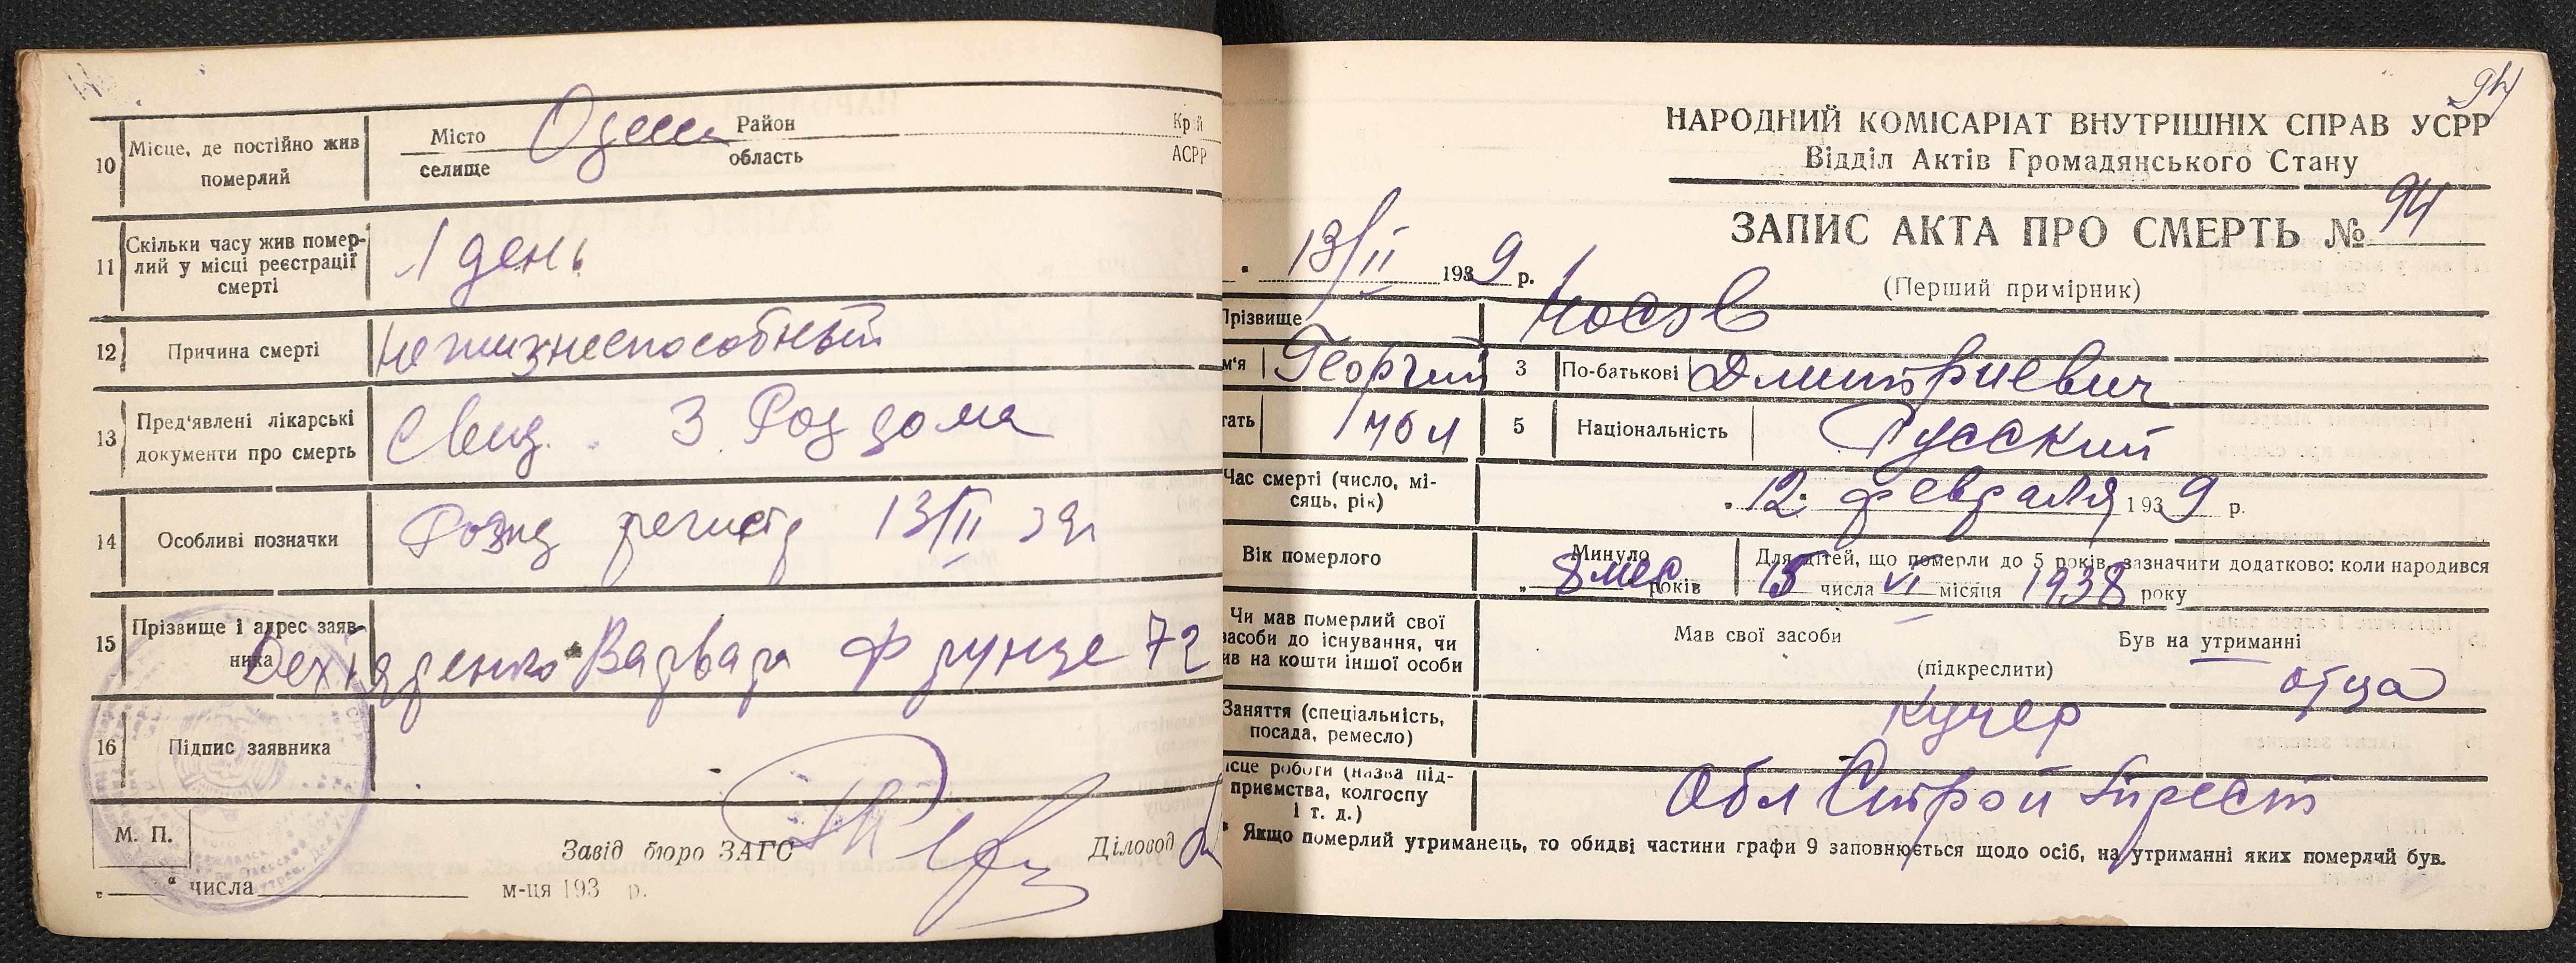 10 Місце, де постійно жив померлий
Місто селище Одесса Район область Край АСРР
11 Скільки часу жив помер-
лий у місці реєстрації
смерті
1 день
12 Причина смерті
Нежизнеспособный
13 Пред'явлені лікарські
документи про смерть
Свид. 3 Роддома
14 Особливі позначки
регистр 13/II 39г
15 Прізвище і адрес заяв-
ника
Варвара Фрунзе 72
16 Підпис заявника
М. П.
Завід бюро ЗАГС
Діловод
" " числа м-ця 193 р.
94
НАРОДНИЙ КОМІСАРІАТ ВНУТРІШНІХ СПРАВ УСРР
Відділ Актів Громадянського Стану
ЗАПИС АКТА ПРО СМЕРТЬ № 94
(Перший примірник)
" 13/II 1939 р.
Прізвище Носов
м'я Георгий 3 По-батькові Дмитриевич
тать 5 Національність Русский
Час смерті (число, мі-
сяць, рік)
" 12 февраля 1939 р.
Вік померлого
Минуло
" 8 мес років
Для дітей, що померли до 5 років, зазначити додатково: коли народився
15 числа VI місяця 1938 року
Чи мав померлий свої
засоби до існування, чи
ив на кошти іншої особи
Мав свої засоби Був на утриманні
(підкреслити)
отца
Заняття (спеціальність,
посада, ремесло)
Кучер
ісце роботи (назва під-
приємства, колгоспу
і т. д.)
Обл Строй Трест
* Якщо померлий утриманець, то обидві частини графи 9 заповнюється щодо осіб, на утриманні яких померлий був.